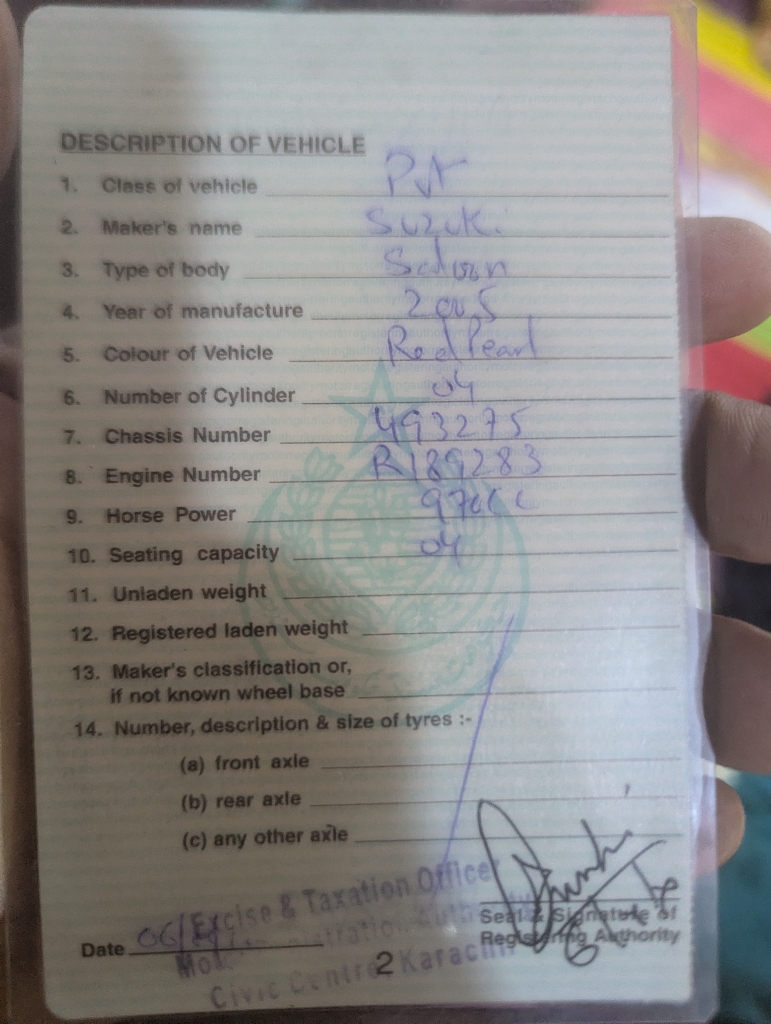 DESCRIPTION OF VEHICLE
1. Class of vehicle Pvt
2. Maker's name Suzuki
3. Type of body Saloon
4. Year of manufacture 2005
5. Colour of Vehicle Red Pearl
6. Number of Cylinder 04
7. Chassis Number 493275
8. Engine Number R189283
9. Horse Power 970cc
10. Seating capacity 04
11. Unladen weight
12. Registered laden weight
13. Maker's classification or,
if not known wheel base
14. Number, description & size of tyres :-
(a) front axle
(b) rear axle
(c) any other axle
Excise & Taxation Officer
Seal & Signature of
Registering Authority
Date 06/
Civic Centre Karachi
2